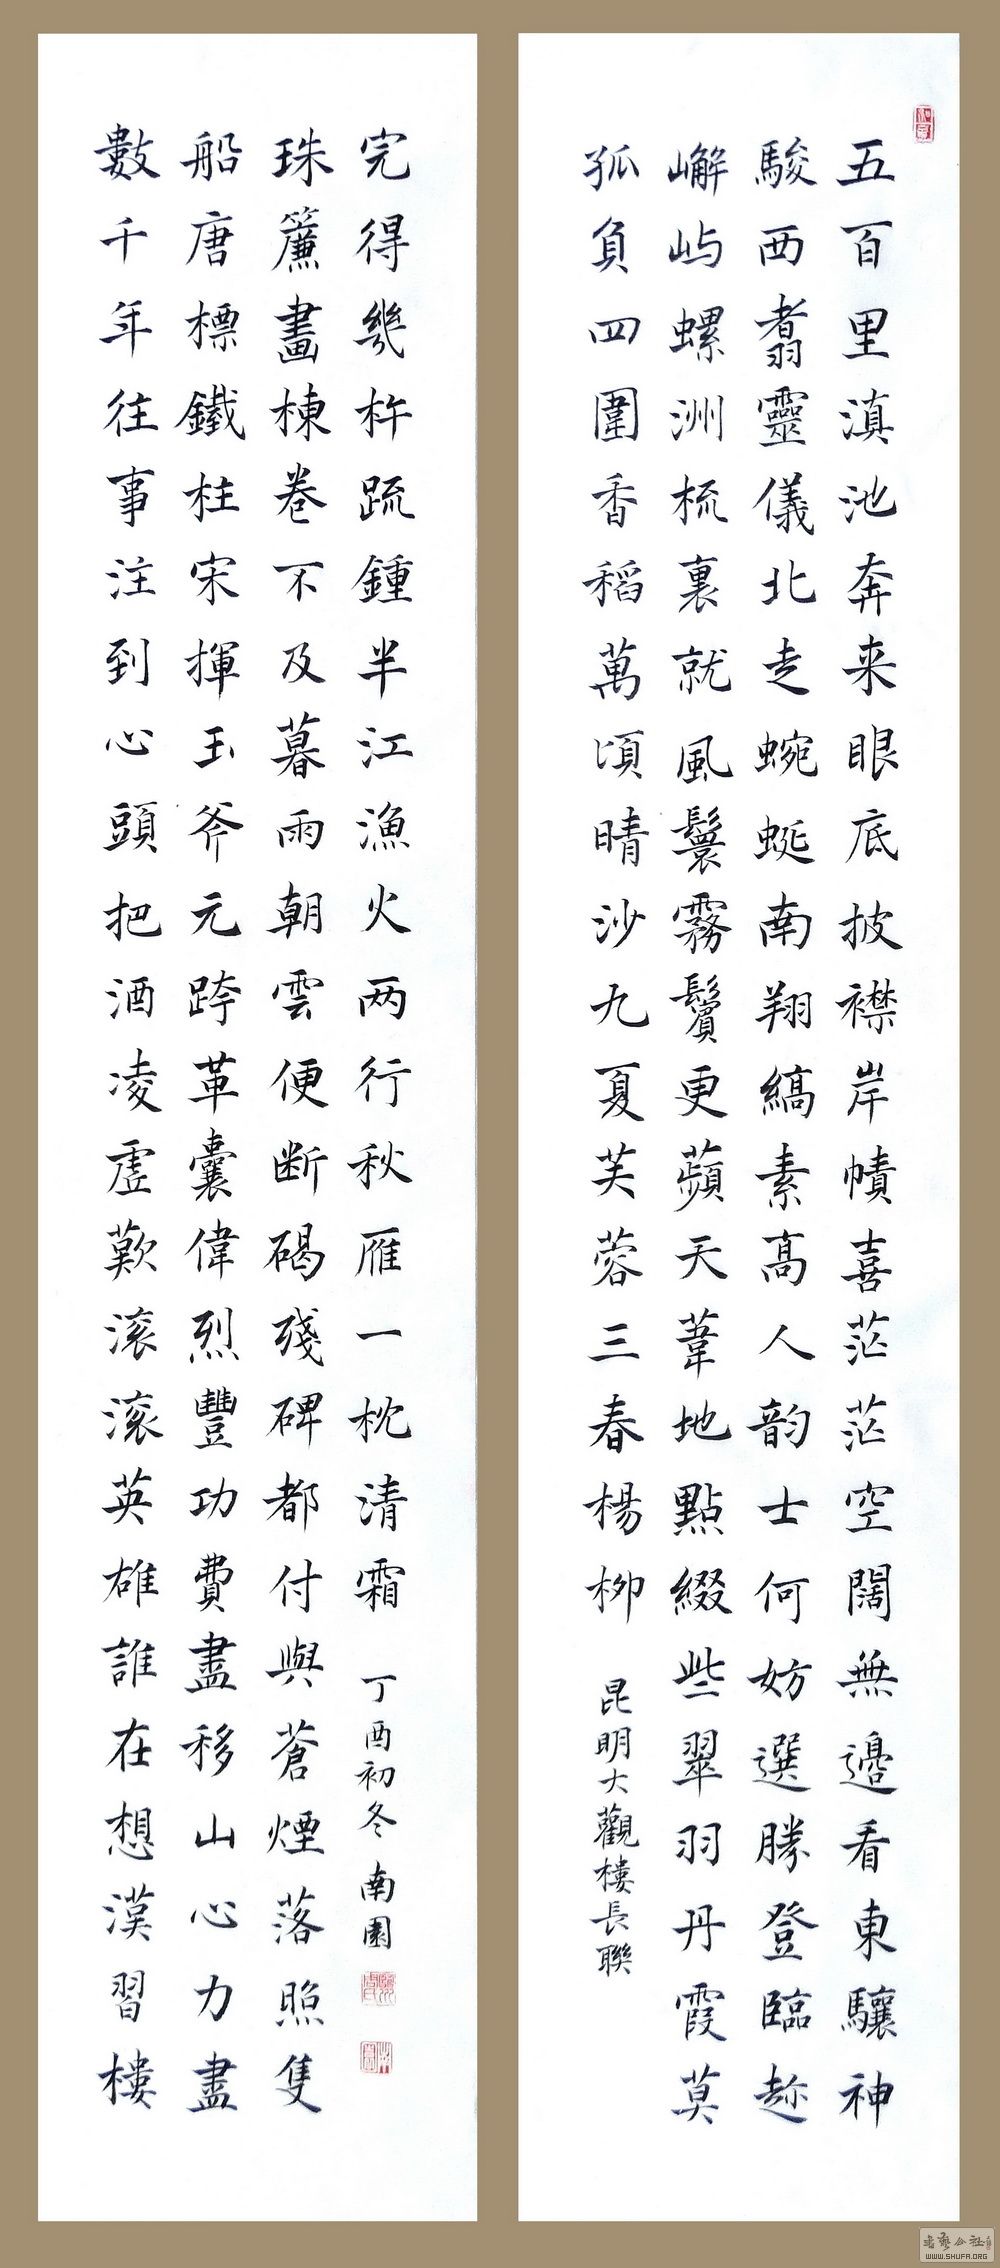 五百里滇池奔来眼底披襟岸幘喜茫茫空闊無邊看東驤神
駿西翥靈儀北走蜿蜒南翔縞素高人韵士何妨選勝登臨趂
嶰屿螺洲梳裏就風鬟霧鬢更蘋天葦地點綴些翠羽丹霞莫
孤負四圍香稻萬頃晴沙九夏芙蓉三春楊柳
昆明大觀樓長聯
數千年往事注到心頭把酒凌虛歎滚滚英雄誰在想漢習樓
船唐標鐵柱宋揮玉斧元跨革囊偉烈豐功費盡移山心力盡
珠簾畫棟卷不及暮雨朝雲便断碣殘碑都付與蒼煙落照隻
完得幾杵疏鍾半江漁火两行秋雁一枕清霜
丁酉初冬 南園
WWW.SHUFA.ORG